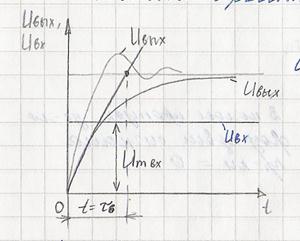 Uвых,
Uвх
Uвых
Uвых
Uвх
Um вх
0
t=τв
t